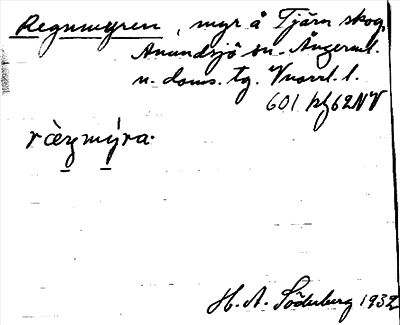 Regnmyren, myr å Tjärn skog,
Anundsjö sn. Ångerml.
n. doms. tg. Vnorrl. l.
601 kf 62 NV
ræ̀gmýra.
H. A. Söderberg 1932